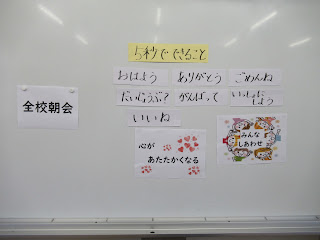 全校朝会
5秒でできること
おはよう ありがとう ごめんね
だいじょうぶ? がんばって いっしょにしよう
いいね
心があたたかくなる
みんなしあわせ